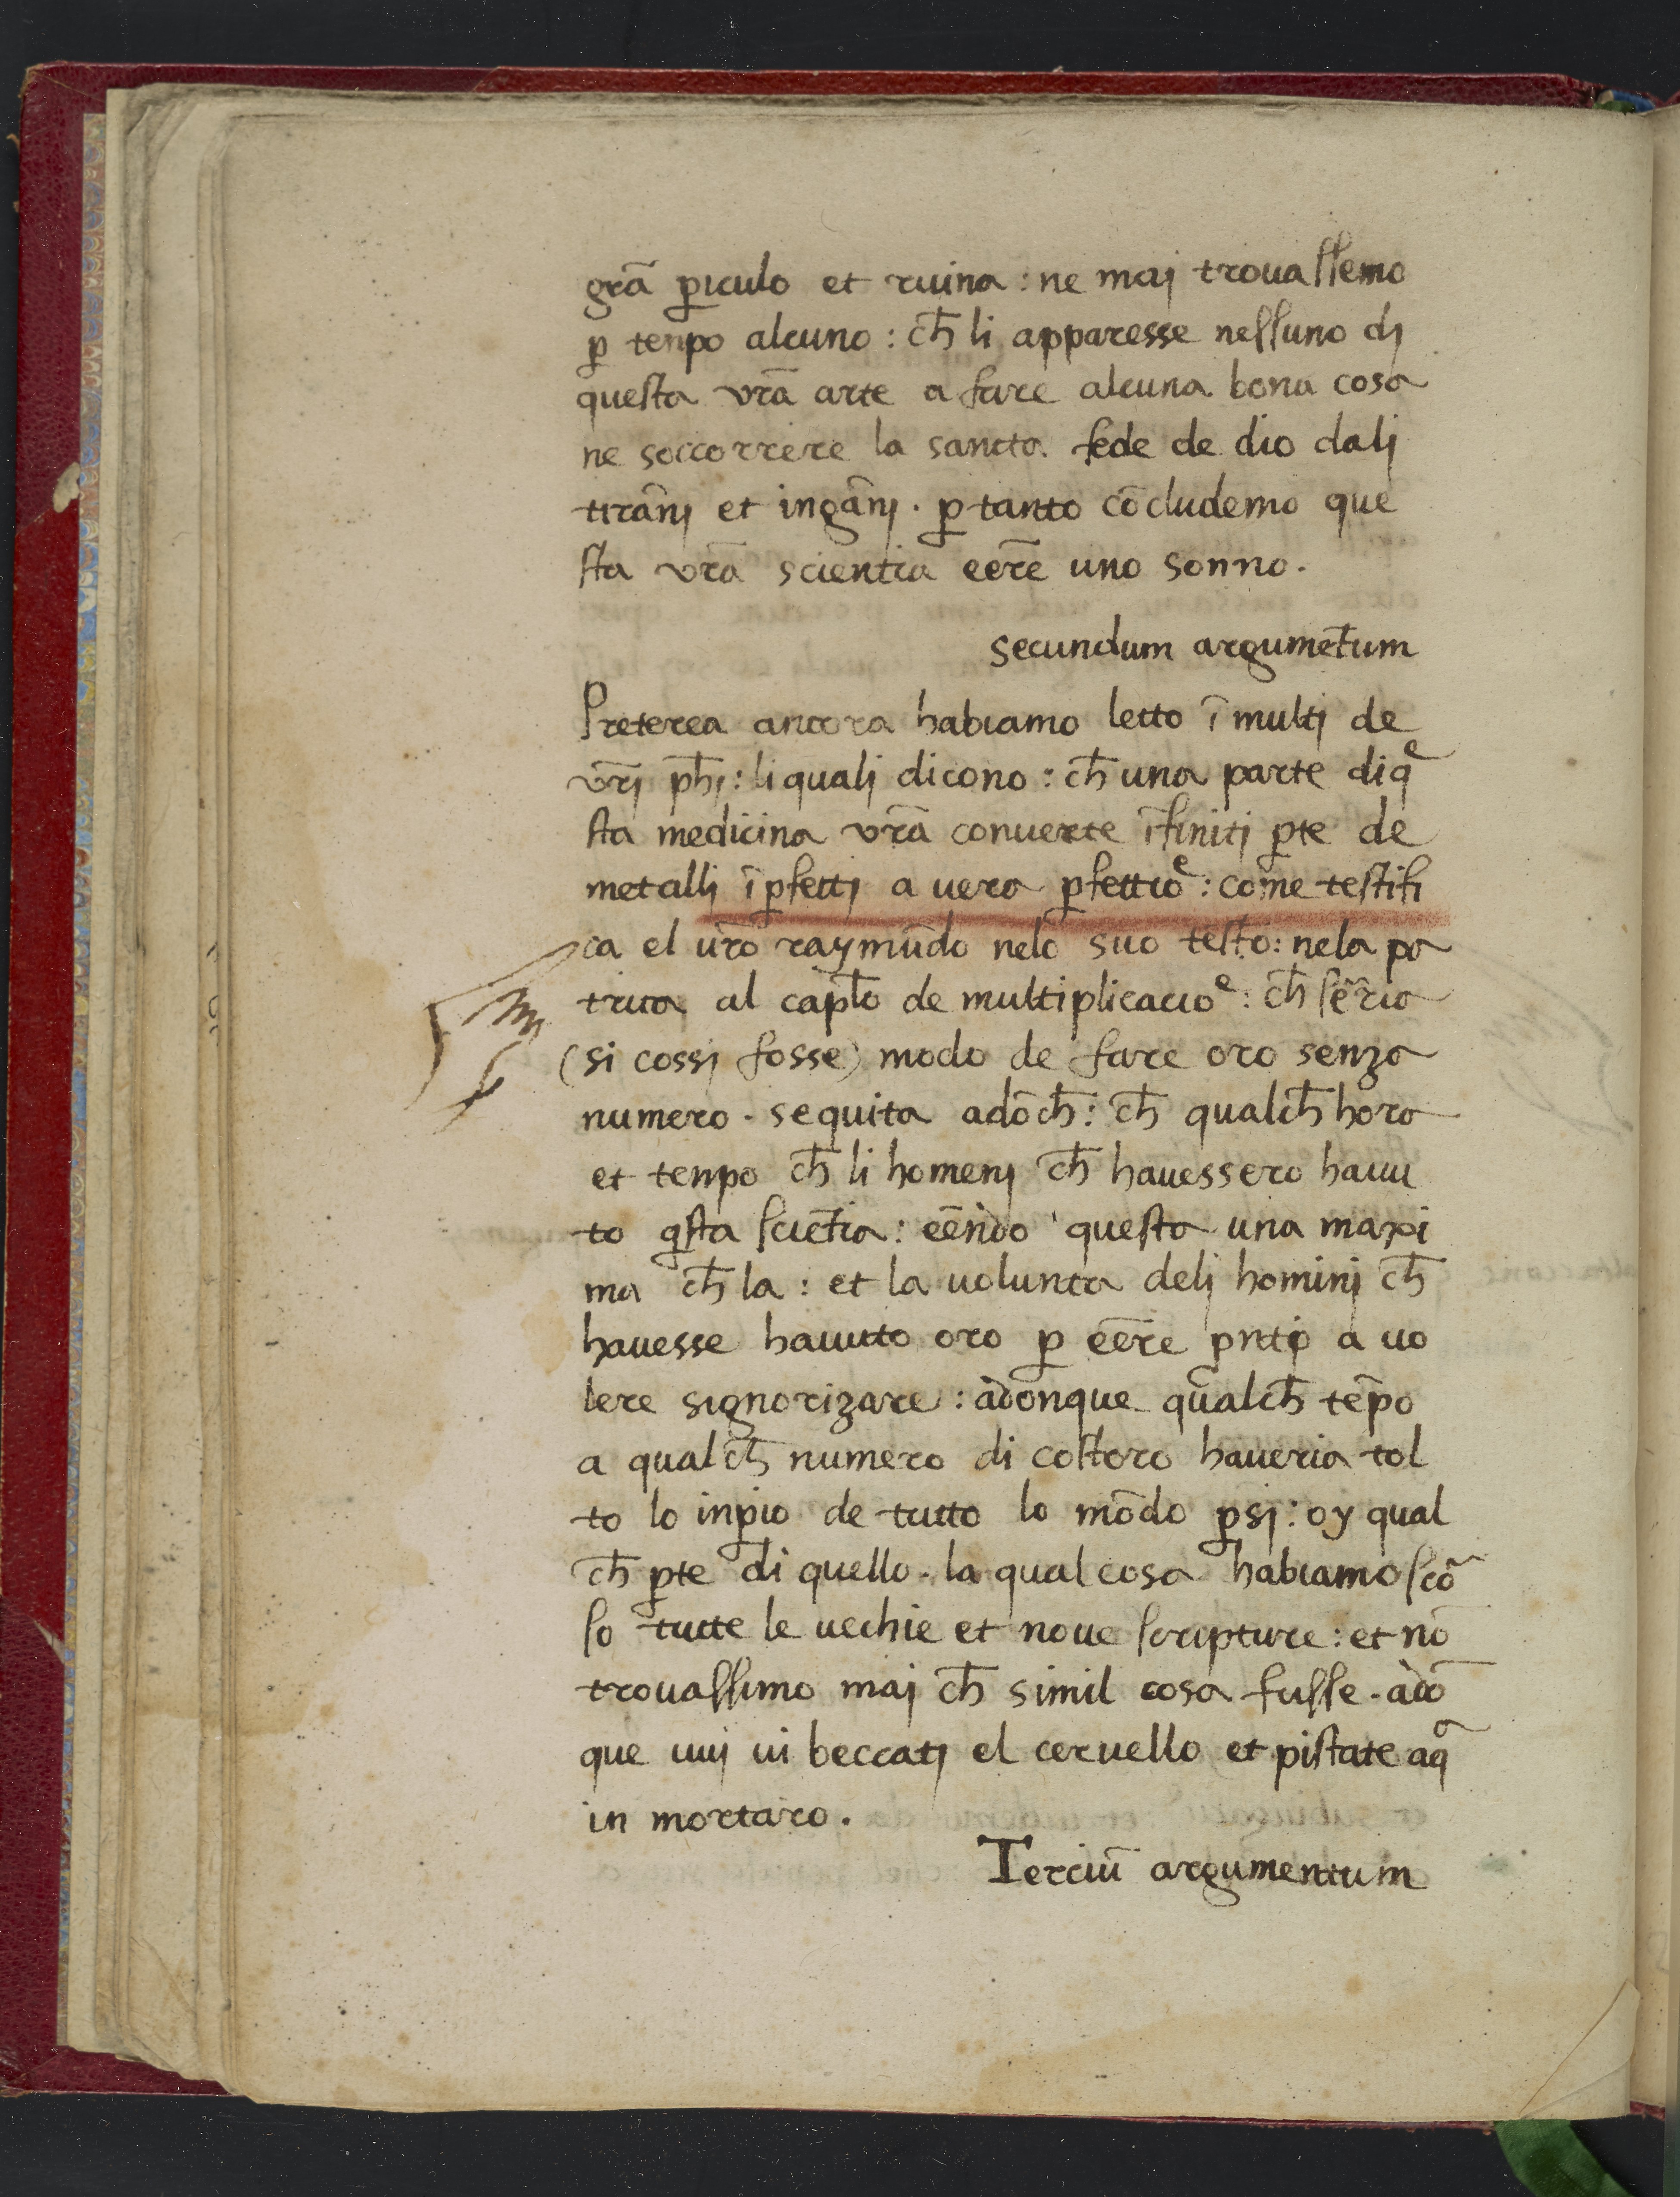 grā ꝑiculo et ruina : ne maj trouaſſemo
ꝑ tenpo alcuno : ch̄ li apparesse neſſuno dj
queſta vrā arte a fare alcuna bona cosa
ne soccorrere la sancta fede de dio dalj
tirān̄j et ingān̄j . ꝑ tanto cōcludemo que
ſta vrā scientia eēre uno sonno .
secundum argumētum
Preterea ancora habiamo letto ī multj de
vrj̄ ph̄j : li qualj dicono : ch̄ una parte di qͤ
ſta medicina vrā conuerte īfinitj ꝑte de
metallj īꝑfettj a uera ꝑfettioͤ : come teſtifi
ca el ur̄o raymūdo nelo suo teſto : nela pa
trica al capl̄o de multiplicacioͤ : ch̄ ſēria
(si cossj fosse) modo de fare oro senza
numero . sequita adōch̄ : ch̄ qualch̄ hora
et tenpo ch̄ li homenj ch̄ hauessero hauu
to qſta ſciētia : eēndo queſta una maxi
ma ch̄ la : et la uolunta delj hominj ch̄
hauesse hauuto oro ꝑ eēre pntj̄ a uo
lere signorizare : adonque qualch̄ tēpo
a qualch̄ numero di coſtoro haueria tol
to lo inꝑio de tutto lo mōdo ꝑsj : oy qual
ch̄ ꝑte di quello . la qual cosa habiamo ſcō
ſo tutte le uechie et noue ſcripture : et nō
trouaſſimo maj ch̄ simil cosa fuſſe . adō
que uuj ui beccatj el ceruello et piſtate aq̄
in mortaro .
Terciū argumentum